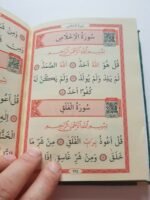 سُورَةُ الْإِخْلَاصِ
بِسْمِ اللَّهِ الرَّحْمَٰنِ الرَّحِيمِ
قُلْ هُوَ اللَّهُ أَحَدٌ اللَّهُ الصَّمَدُ
لَمْ يَلِدْ وَلَمْ يُولَدْ وَلَمْ يَكُنْ لَهُ
كُفُوًا أَحَدٌ
سُورَةُ الْفَلَقِ
بِسْمِ اللَّهِ الرَّحْمَٰنِ الرَّحِيمِ
قُلْ أَعُوذُ بِرَبِّ الْفَلَقِ مِنْ شَرِّ مَا
خَلَقَ وَمِنْ شَرِّ غَاسِقٍ إِذَا